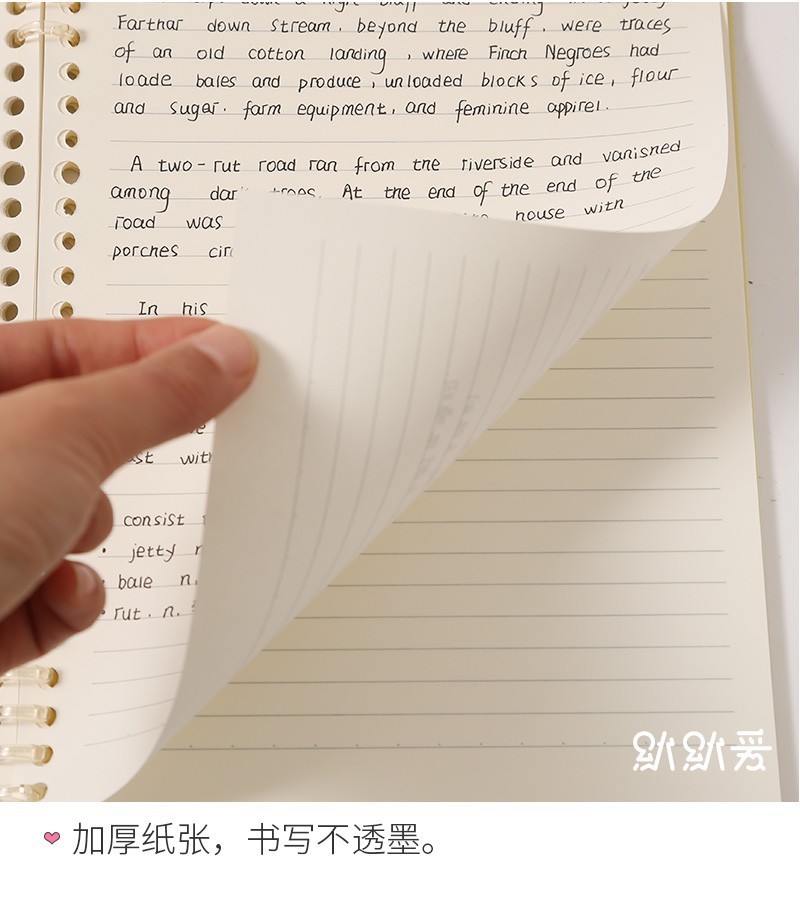 Farthar down stream, beyond the bluff, were traces
of an old cotton landing, where Finch Negroes had
loade bales and produce, unloaded blocks of ice, flour
and sugar. farm equipment, and feminine appirel.
A two-rut road ran from the riverside and vanished
among At the end of the end of the
road was house with
porches
In his
consist
• jetty
• bale n.
• rut. n.
加厚纸张，书写不透墨。